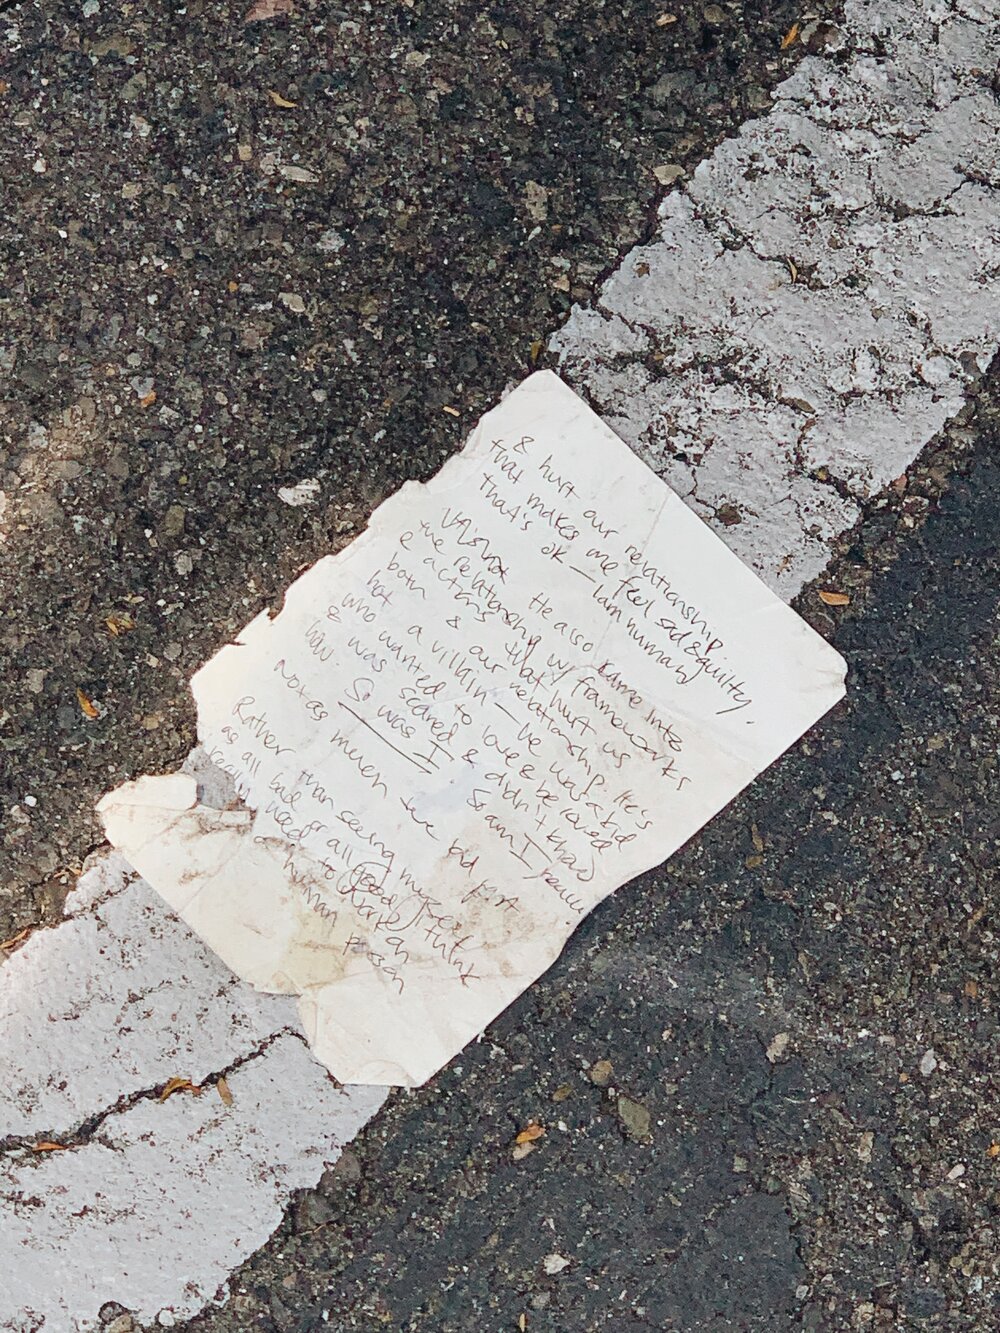 & hurt our relationship
that makes me feel sad & guilty.
that's ok — I am human
He also came into
the relationship w/ frameworks
& actions that hurt us
both & our relationship. He's
not a villain — he was a kid
who wanted to love & be loved
& was scared & didn't know
how. So was I. So am I,
Not as much we kid part
Rather than seeing myself
as all bad or all good, I think
I really need to a
human person